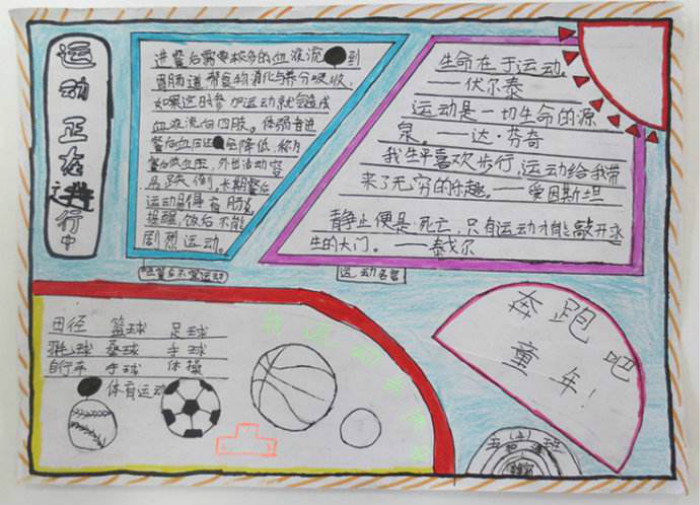 运动正在进行中
进餐后需要较多的血液流到
胃肠道,帮食物消化与养分吸收,
如果这时参加运动就会造成
血液流向四肢。体弱者进
餐后血压会降低,称为
餐后低血压,外出活动容
易跌倒,长期餐后
运动是得胃肠炎
提醒,饭后不能
剧烈运动。
生命在于运动。
——伏尔泰
运动是一切生命的源
泉。——达·芬奇
我生平喜欢步行,运动给我带
来了无穷的乐趣。——爱因斯坦
静止便是死亡,只有运动才能敲开永
生的大门。——泰戈尔
运动名言
田径 篮球 足球
羽毛球 垒球 手球
自行车 手球 体操
体育运动
奔跑吧
童年!